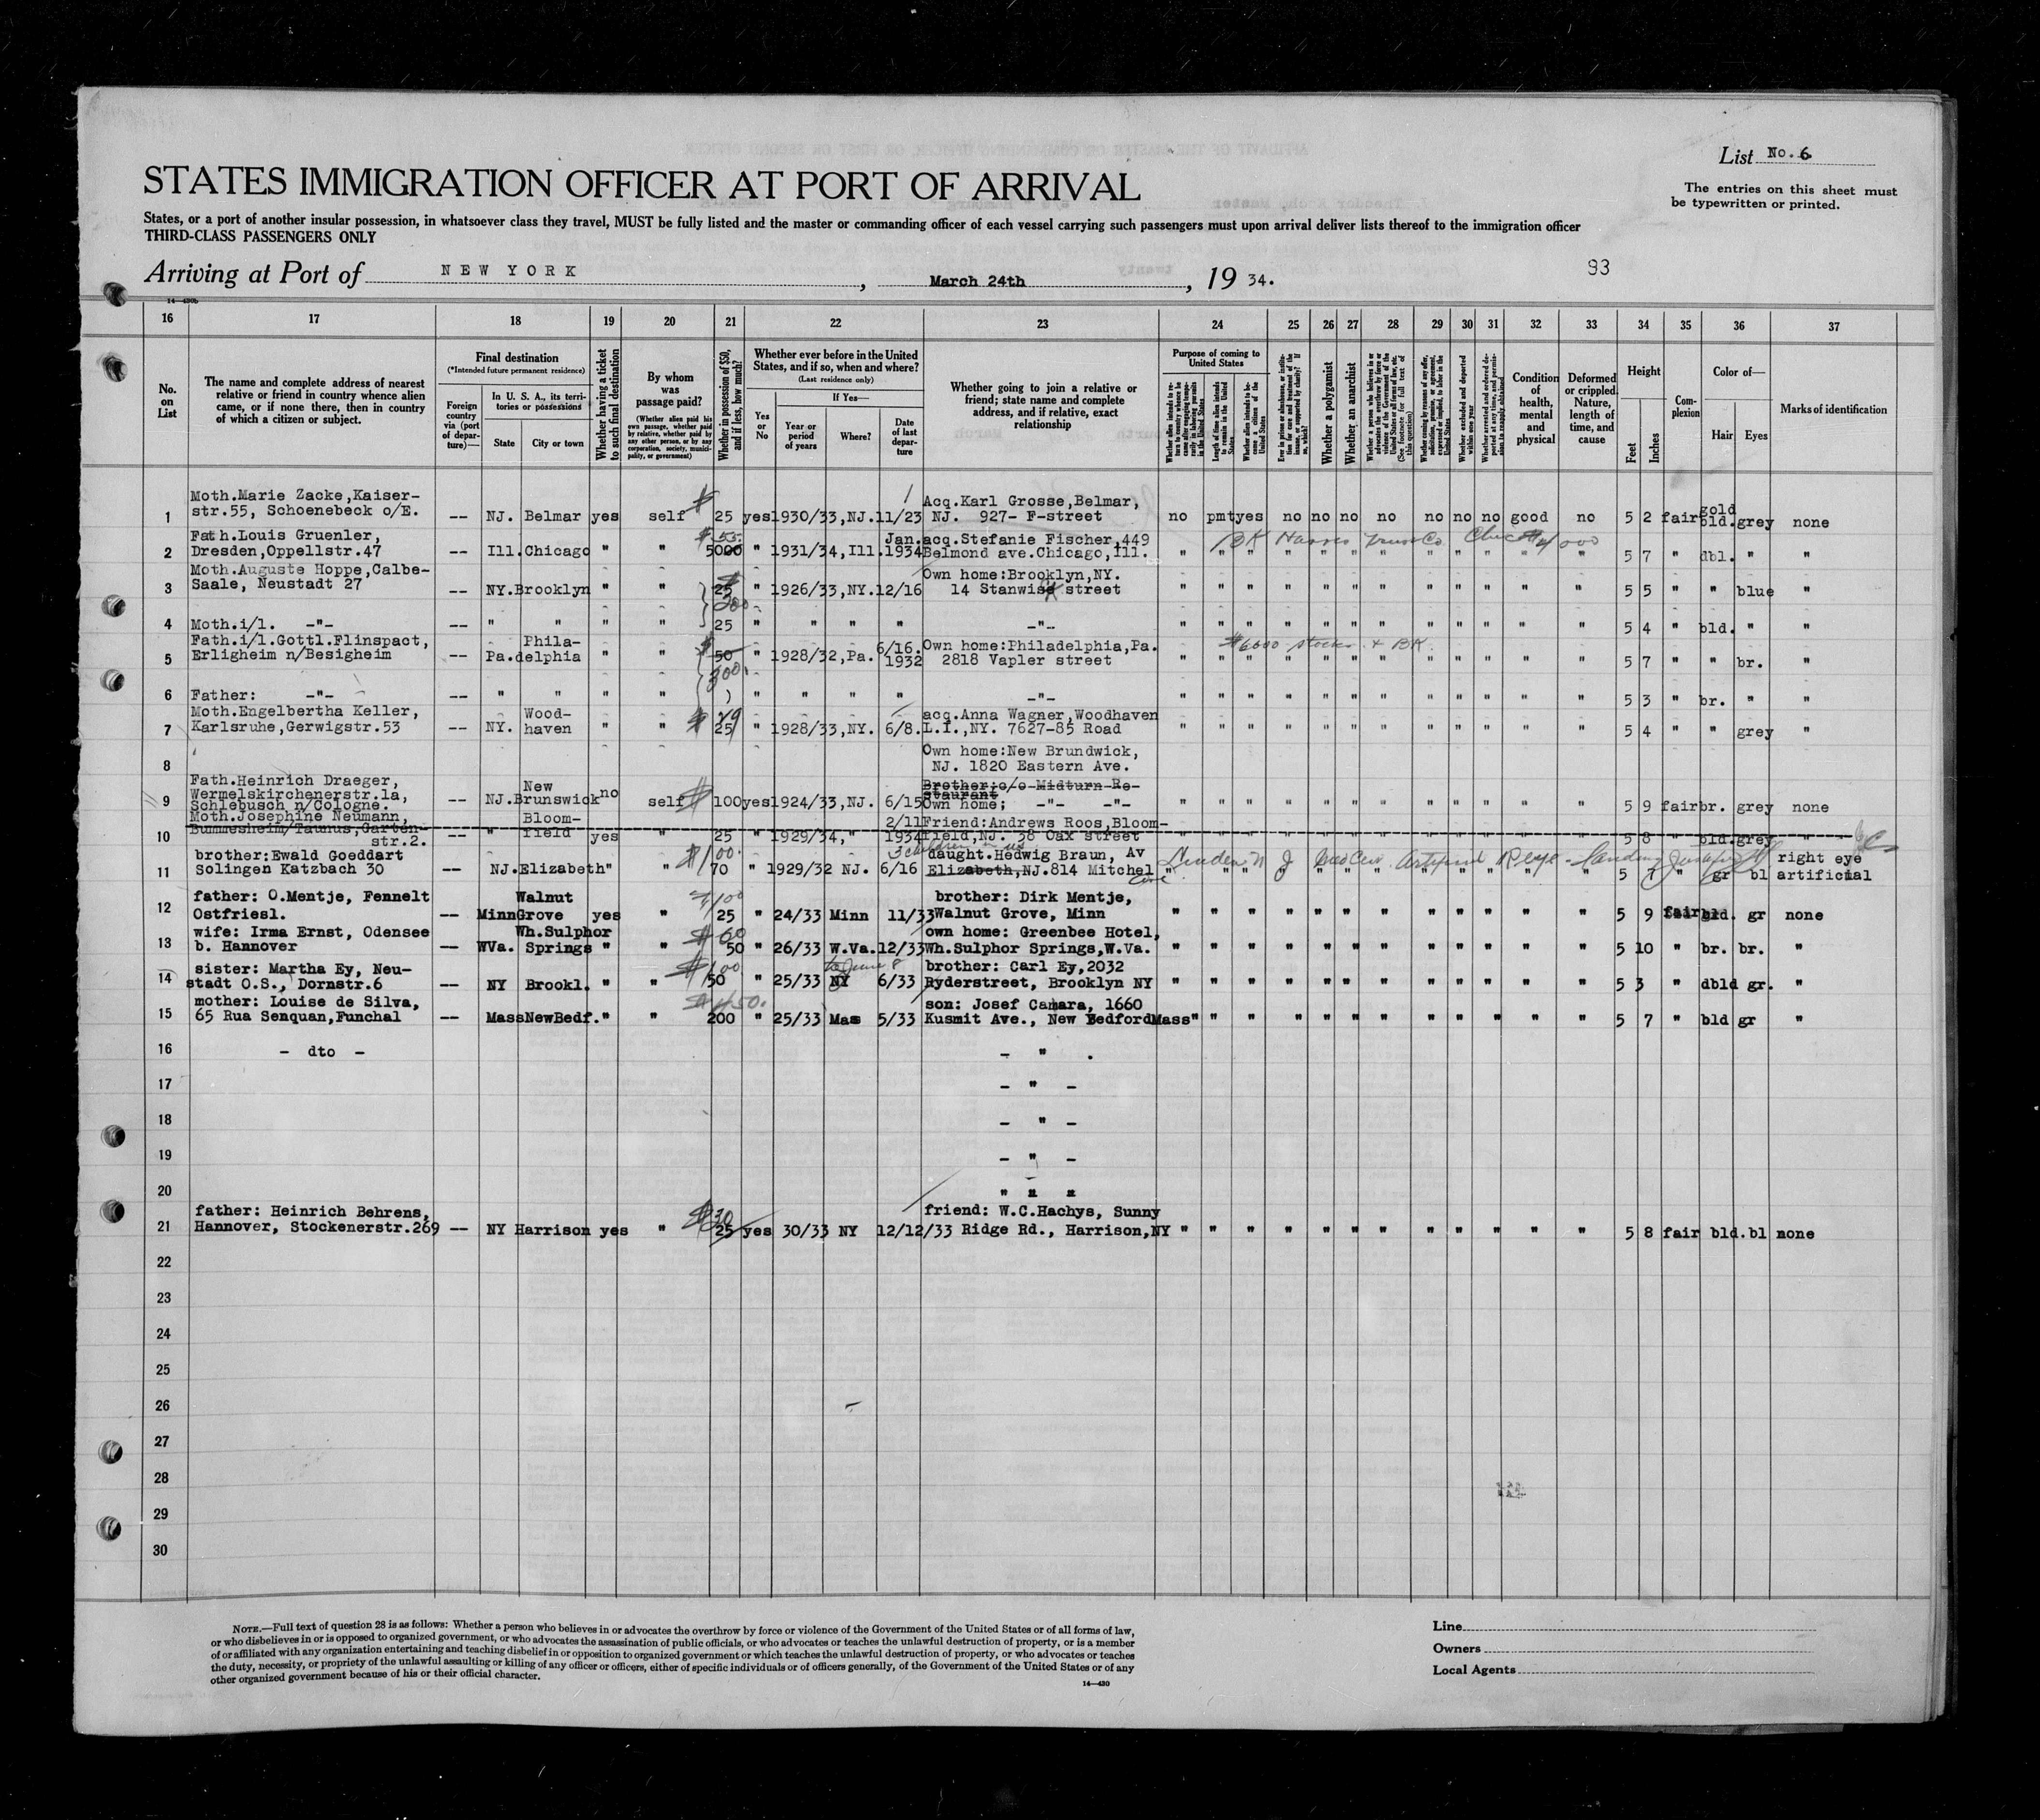 List No. 6
STATES IMMIGRATION OFFICER AT PORT OF ARRIVAL
The entries on this sheet must
be typewritten or printed.
States, or a port of another insular possession, in whatsoever class they travel, MUST be fully listed and the master or commanding officer of each vessel carrying such passengers must upon arrival deliver lists thereof to the immigration officer
THIRD-CLASS PASSENGERS ONLY
Arriving at Port of NEW YORK, March 24th, 19 34.
93
14—430b
16 17 18 19 20 21 22 23 24 25 26 27 28 29 30 31 32 33 34 35 36 37
No. on List
The name and complete address of nearest relative or friend in country whence alien came, or if none there, then in country of which a citizen or subject.
Final destination
(*Intended future permanent residence)
Foreign country via (port of departure)—
In U. S. A., its territories or possessions
State
City or town
Whether having a ticket to such final destination
By whom was passage paid?
(Whether alien paid his own passage, whether paid by relative, whether paid by any other person, or by any corporation, society, municipality, or government)
Whether in possession of $50, and if less, how much?
Whether ever before in the United States, and if so, when and where?
(Last residence only)
Yes or No
If Yes—
Year or period of years
Where?
Date of last departure
Whether going to join a relative or friend; state name and complete address, and if relative, exact relationship
Purpose of coming to United States
Whether a polygamist
Whether an anarchist
Condition of health, mental and physical
Deformed or crippled. Nature, length of time, and cause
Height
Feet
Inches
Complexion
Color of—
Hair
Eyes
Marks of identification
1 Moth.Marie Zacke,Kaiser- Acq.Karl Grosse,Belmar,
str.55, Schoenebeck o/E. -- NJ. Belmar yes self 25 yes 1930/33,NJ. 11/23 NJ. 927- F-street no pmt yes no no no no no no no good no 5 2 fair gold bld. grey none
2 Fath.Louis Gruenler, $55. Jan. acq.Stefanie Fischer,449
Dresden,Oppellstr.47 -- Ill.Chicago " " 5000 " 1931/34,Ill. 1934 Belmond ave.Chicago,Ill. " " " " " " " " " " " " 5 7 " dbl. " "
BK Harris Trust Co
3 Moth.Auguste Hoppe,Calbe- Own home:Brooklyn,NY.
Saale, Neustadt 27 -- NY.Brooklyn " " 25 " 1926/33,NY. 12/16 14 Stanwis street " " " " " " " " " " " " 5 5 " " blue "
4 Moth.i/l. -"- -- " " " " 25 " " " " -"- " " " " " " " " " " " " 5 4 " bld. " "
5 Fath.i/l.Gottl.Flinspact, Phila- 6/16. Own home:Philadelphia,Pa.
Erligheim n/Besigheim -- Pa.delphia " " 50 " 1928/32,Pa. 1932 2818 Vapler street " " " " " " " " " " " " 5 7 " " br. "
$6600 stocks + BK
300.
6 Father: -"- -- " " " " " " " " -"- " " " " " " " " " " " " 5 3 " br. " "
7 Moth.Engelbertha Keller, Wood- acq.Anna Wagner,Woodhaven
Karlsruhe,Gerwigstr.53 -- NY. haven " " 25 " 1928/33,NY. 6/8. L.I.,NY. 7627-85 Road " " " " " " " " " " " " 5 4 " " grey "
8 Own home:New Brundwick,
NJ. 1820 Eastern Ave.
9 Fath.Heinrich Draeger, Brother;c/o Midturn Re-
Wermelskirchenerstr.1a, New staurant
Schlebusch n/Cologne. -- NJ.Brunswick no self $ 100 yes 1924/33,NJ. 6/15 Own home; -"- -"- " " " " " " " " " " " " 5 9 fair br. grey none
10 Moth.Josephine Neumann, Bloom- 2/11 Friend:Andrews Roos,Bloom-
Bummesheim/Taunus,Garten- -- " field yes " 25 " 1929/34, " 1934 field,NJ. 38 Oax street 5 8 bld. grey "
str.2.
3 children in US
11 brother:Ewald Goeddart $100. daught.Hedwig Braun, Av
Solingen Katzbach 30 -- NJ.Elizabeth " " 70 " 1929/32 NJ. 6/16 Elizabeth,NJ.814 Mitchel " " " " " " " " " " " " 5 7 " gr bl right eye artificial
Linden N J Med Cer. Artificial R eye
12 father: O.Mentje, Fennelt Walnut $100 brother: Dirk Mentje,
Ostfriesl. -- Minn Grove yes " 25 " 24/33 Minn 11/33 Walnut Grove, Minn " " " " " " " " " " " " 5 9 fair bld. gr none
13 wife: Irma Ernst, Odensee Wh.Sulphor $60 own home: Greenbee Hotel,
b. Hannover -- WVa. Springs " " 50 " 26/33 W.Va. 12/33 Wh.Sulphor Springs,W.Va. " " " " " " " " " " " " 5 10 " br. br. "
14 sister: Martha Ey, Neu- $100 to June 8 brother: Carl Ey,2032
stadt O.S., Dornstr.6 -- NY Brookl. " " 50 " 25/33 NY 6/33 Ryderstreet, Brooklyn NY " " " " " " " " " " " " 5 3 " dbld gr. "
15 mother: Louise de Silva, $450. son: Josef Camara, 1660
65 Rua Senquan,Funchal -- Mass NewBedf. " " 200 " 25/33 Mas 5/33 Kusmit Ave., New Bedford Mass " " " " " " " " " " " " 5 7 " bld gr "
16 - dto - - " .
17 - " -
18 - " -
19 - " -
20 " " "
21 father: Heinrich Behrens, $30 friend: W.C.Hachys, Sunny
Hannover, Stockenerstr.269 -- NY Harrison yes " 25 yes 30/33 NY 12/12/33 Ridge Rd., Harrison,NY " " " " " " " " " " " " 5 8 fair bld. bl none
22
23
24
25
26
27
28
29
30
NOTE.—Full text of question 28 is as follows: Whether a person who believes in or advocates the overthrow by force or violence of the Government of the United States or of all forms of law,
or who disbelieves in or is opposed to organized government, or who advocates the assassination of public officials, or who advocates or teaches the unlawful destruction of property, or is a member
of or affiliated with any organization entertaining and teaching disbelief in or opposition to organized government or which teaches the unlawful destruction of property, or who advocates or teaches
the duty, necessity, or propriety of the unlawful assaulting or killing of any officer or officers, either of specific individuals or of officers generally, of the Government of the United States or of any
other organized government because of his or their official character.
14—430
Line
Owners
Local Agents